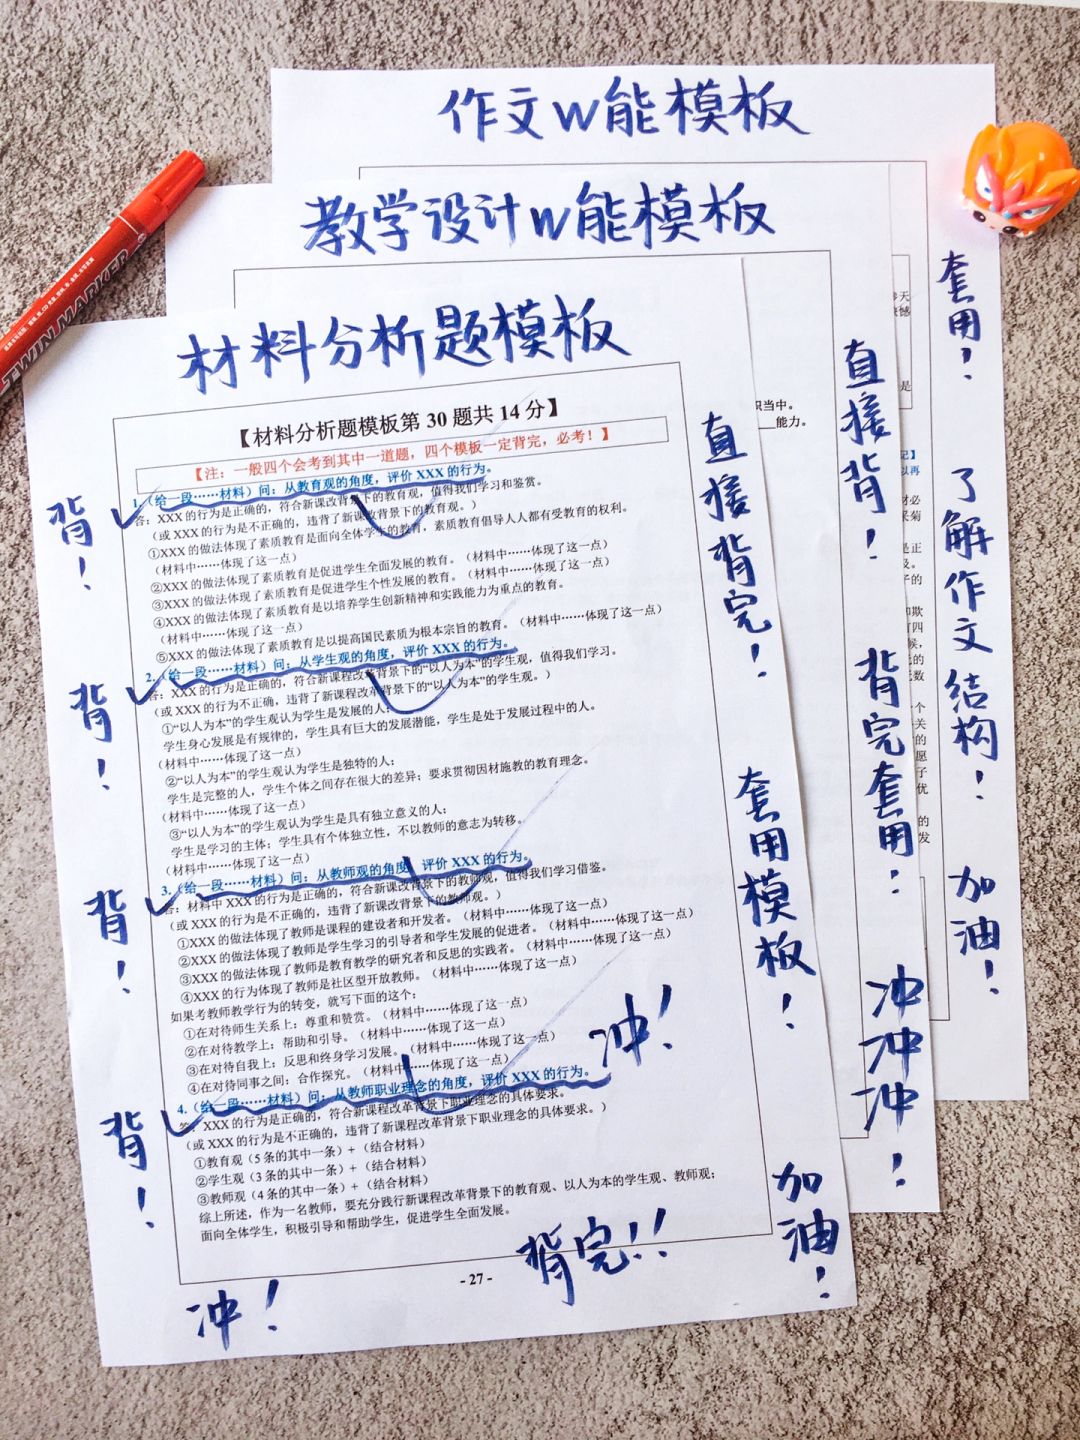 作文w能模板
教学设计w能模板
材料分析题模板
【材料分析题模板第 30 题共 14 分】
【注：一般四个会考到其中一道题，四个模板一定背完，必考！】
1.（给一段……材料）问：从教育观的角度，评价 XXX 的行为。
答：XXX 的行为是正确的，符合新课改背景下的教育观，值得我们学习和鉴赏。
（或 XXX 的行为是不正确的，违背了新课改背景下的教育观。）
①XXX 的做法体现了素质教育是面向全体学生的教育，素质教育倡导人人都有受教育的权利。
（材料中……体现了这一点）
②XXX 的做法体现了素质教育是促进学生全面发展的教育。（材料中……体现了这一点）
③XXX 的做法体现了素质教育是促进学生个性发展的教育。（材料中……体现了这一点）
④XXX 的做法体现了素质教育是以培养学生创新精神和实践能力为重点的教育。
（材料中……体现了这一点）
⑤XXX 的做法体现了素质教育是以提高国民素质为根本宗旨的教育。（材料中……体现了这一点）
2.（给一段……材料）问：从学生观的角度，评价 XXX 的行为。
答：XXX 的行为是正确的，符合新课程改革背景下的“以人为本”的学生观，值得我们学习。
（或 XXX 的行为不正确，违背了新课程改革背景下的“以人为本”的学生观。）
①“以人为本”的学生观认为学生是发展的人；
学生身心发展是有规律的，学生具有巨大的发展潜能，学生是处于发展过程中的人。
（材料中……体现了这一点）
②“以人为本”的学生观认为学生是独特的人；
学生是完整的人，学生个体之间存在很大的差异；要求贯彻因材施教的教育理念。
（材料中……体现了这一点）
③“以人为本”的学生观认为学生是具有独立意义的人；
学生是学习的主体；学生具有个体独立性，不以教师的意志为转移。
（材料中……体现了这一点）
3.（给一段……材料）问：从教师观的角度，评价 XXX 的行为。
答：材料中 XXX 的行为是正确的，符合新课改背景下的教师观，值得我们学习借鉴。
（或 XXX 的行为是不正确的，违背了新课改背景下的教师观。）
①XXX 的做法体现了教师是课程的建设者和开发者。（材料中……体现了这一点）
②XXX 的做法体现了教师是学生学习的引导者和学生发展的促进者。（材料中……体现了这一点）
③XXX 的做法体现了教师是教育教学的研究者和反思的实践者。（材料中……体现了这一点）
④XXX 的行为体现了教师是社区型开放教师。（材料中……体现了这一点）
如果考教师教学行为的转变，就写下面的这个：
①在对待师生关系上：尊重和赞赏。（材料中……体现了这一点）
②在对待教学上：帮助和引导。（材料中……体现了这一点）
③在对待自我上：反思和终身学习发展。（材料中……体现了这一点）
④在对待同事之间：合作探究。（材料中……体现了这一点）
4.（给一段……材料）问：从教师职业理念的角度，评价 XXX 的行为。
答：XXX 的行为是正确的，符合新课程改革背景下职业理念的具体要求。
（或 XXX 的行为是不正确的，违背了新课程改革背景下职业理念的具体要求。）
①教育观（5 条的其中一条）+（结合材料）
②学生观（3 条的其中一条）+（结合材料）
③教师观（4 条的其中一条）+（结合材料）
综上所述，作为一名教师，要充分践行新课程改革背景下的教育观、以人为本的学生观、教师观；
面向全体学生，积极引导和帮助学生，促进学生全面发展。
- 27 -
背！
背！
背！
背！
冲！
冲！
背完！！
直接背完！
套用模板！
加油！
直接背！
背完套用！
冲冲冲！
套用！
了解作文结构！
加油！
识当中。
能力。
TWIN MARKER